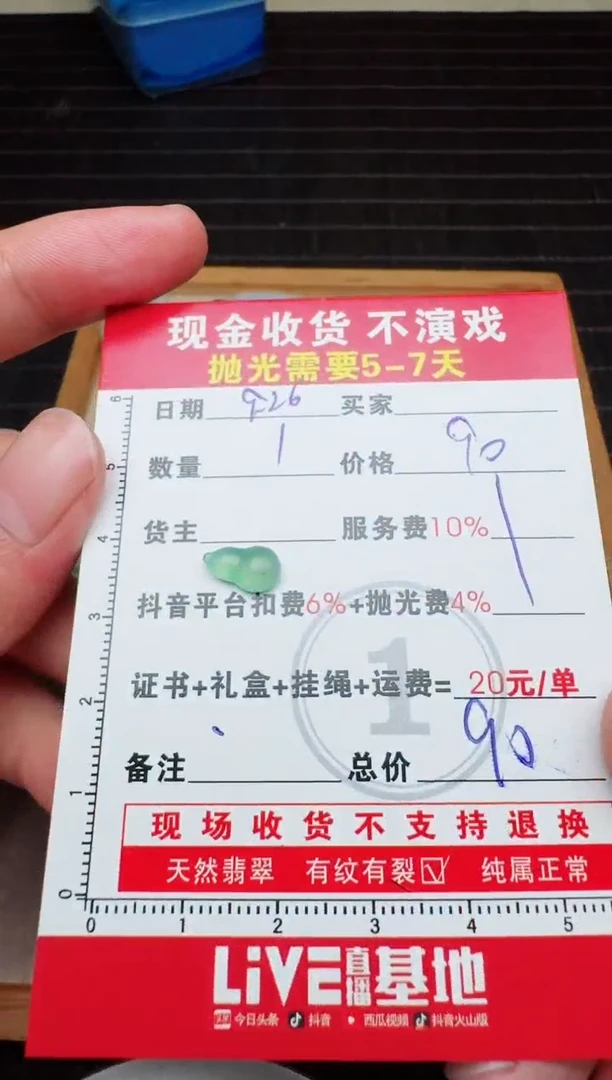 现金收货 不演戏
抛光需要5-7天
日期 9.26 买家
数量 1 价格 90
货主 服务费10%
抖音平台扣费6%+抛光费4%
证书+礼盒+挂绳+运费= 20元/单
1
备注 总价 90
现场收货不支持退换
天然翡翠 有纹有裂☑ 纯属正常
6
5
4
3
2
1
0
0 1 2 3 4 5
LiVE直播基地
今日头条 抖音 西瓜视频 抖音火山版